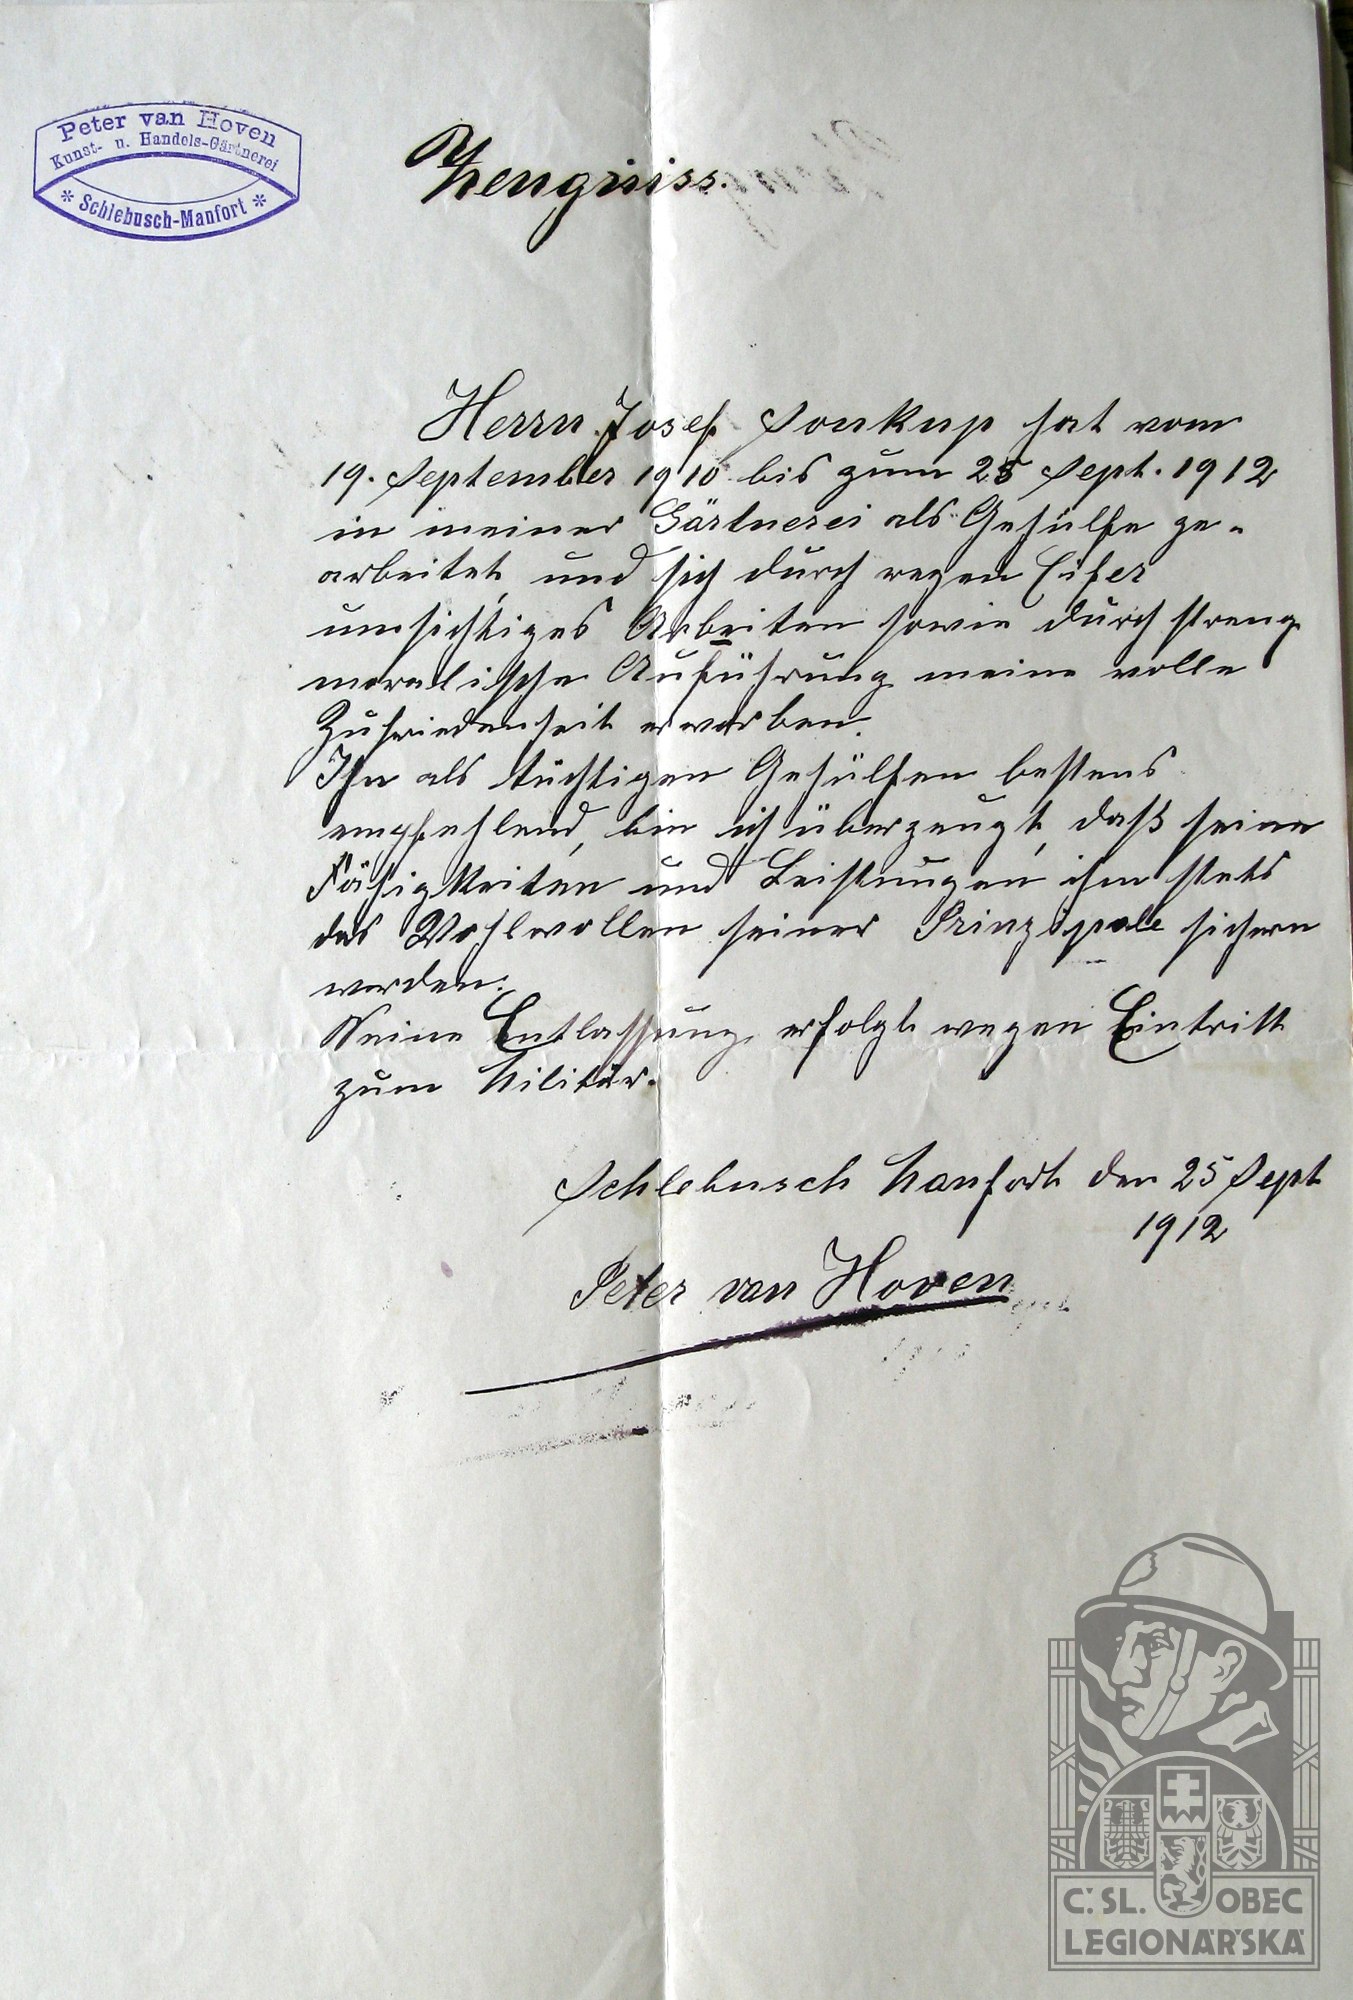 Peter van Hoven
Kunst- u. Handels-Gärtnerei
* Schlebusch-Manfort *
Zeugniss.
Herrn Josef Soukup hat vom
19. September 1910 bis zum 25 Sept. 1912
in meiner Gärtnerei als Gehülfe ge-
arbeitet, und sich durch regen Eifer
umsichtiges Arbeiten sowie durch streng
moralische Auführung meine volle
Zufriedenheit erworben.
Ihn als tüchtigen Gehülfen bestens
empfehlend, bin ich überzeugt, daß seine
Fähigkeiten und Leistungen ihm stets
das Wohlwollen seiner Prinzipale sichern
werden.
Seine Entlassung erfolgt wegen Eintritt
zum Militär.
Schlebusch Manfort den 25 Sept
1912
Peter van Hoven
Č. SL. OBEC
LEGIONÁŘSKÁ